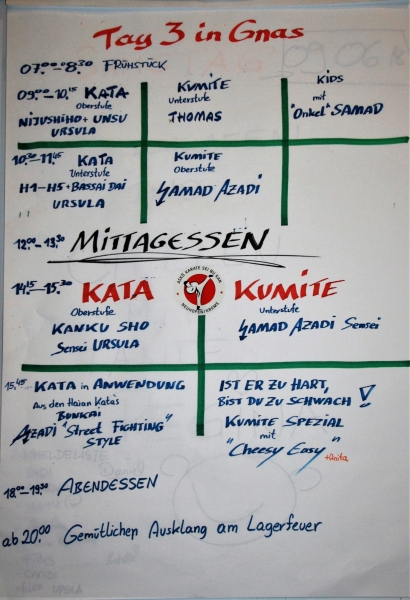 Tag 3 in Gnas
07.00-08.30 FRÜHSTÜCK
09.00-10.15 KATA
Oberstufe
NIJUSHIHO + UNSU
URSULA
KUMITE
Unterstufe
THOMAS
KIDS
mit
"Onkel" SAMAD
10.30-11.45 KATA
Unterstufe
H1-H5 + BASSAI DAI
URSULA
KUMITE
Oberstufe
SAMAD AZADI
12.00-13.30 MITTAGESSEN
14.15-15.30 KATA
Oberstufe
KANKU SHO
Sensei URSULA
KUMITE
Unterstufe
SAMAD AZADI Sensei
15.45- KATA in ANWENDUNG
Aus den Heian Kata's
BUNKAI
AZADI "STREET FIGHTING"
STYLE
IST ER ZU HART,
BIST DU ZU SCHWACH!
KUMITE SPEZIAL
mit
"Cheesy Easy"
+Anita
18.00-19.30 ABENDESSEN
ab 20.00 Gemütlichen Ausklang am Lagerfeuer